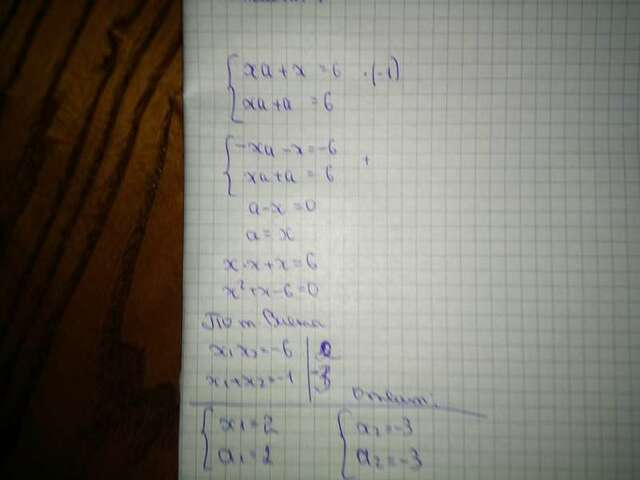 xa + x = 6 · (-1)
xa + a = 6
-xa - x = -6 +
xa + a = 6
a - x = 0
a = x
x·x + x = 6
x² + x - 6 = 0
По т Виета
x₁x₂ = -6 | 2
x₁ + x₂ = -1 | -3
Ответ:
x₁ = 2
a₁ = 2
x₂ = -3
a₂ = -3